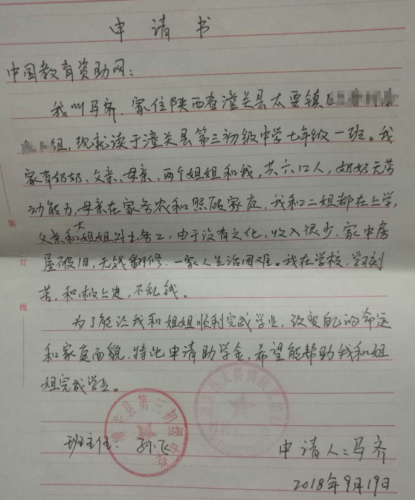 申请书
中国教育资助网：
我叫马齐，家住陕西省潼关县太要镇
组，现就读于潼关县第三初级中学七年级一班。我
家有奶奶、父亲、母亲、两个姐姐和我，共六口人，奶奶无劳
动能力，母亲在家务农和照顾家庭，我和二姐都在上学，
父亲和大姐姐外出务工，由于没有文化，收入很少，家中房
屋破旧，无钱翻修，一家人生活困难。我在学校，学习刻
苦，积极上进，不乱花。
为了能让我和姐姐顺利完成学业，改变自己的命运
和家庭面貌，特此申请助学金，希望能帮助我和姐
姐完成学业。
班主任：孙飞
申请人：马齐
2018年9月19日
潼关县第三初级中学